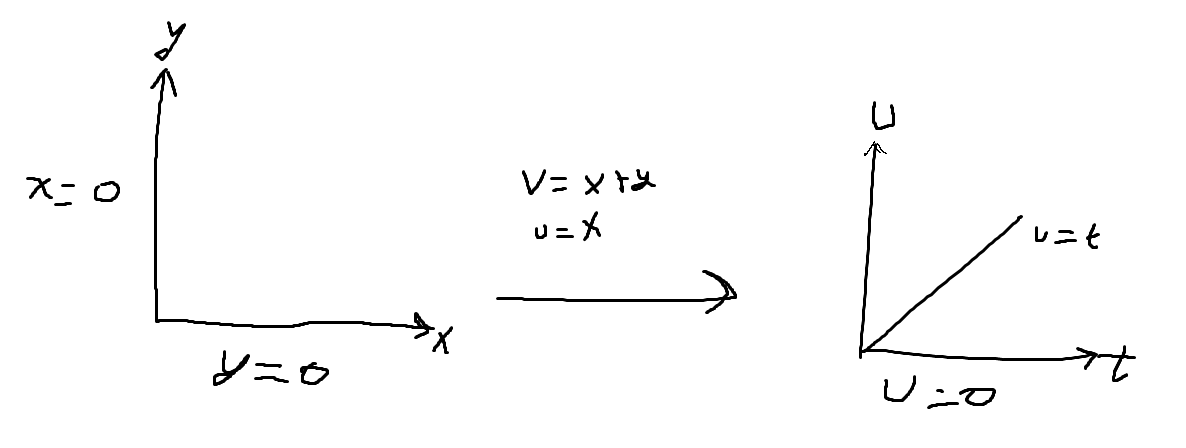 y
x = 0
x
y = 0
V = x + y
u = x
U
u = t
t
U = 0